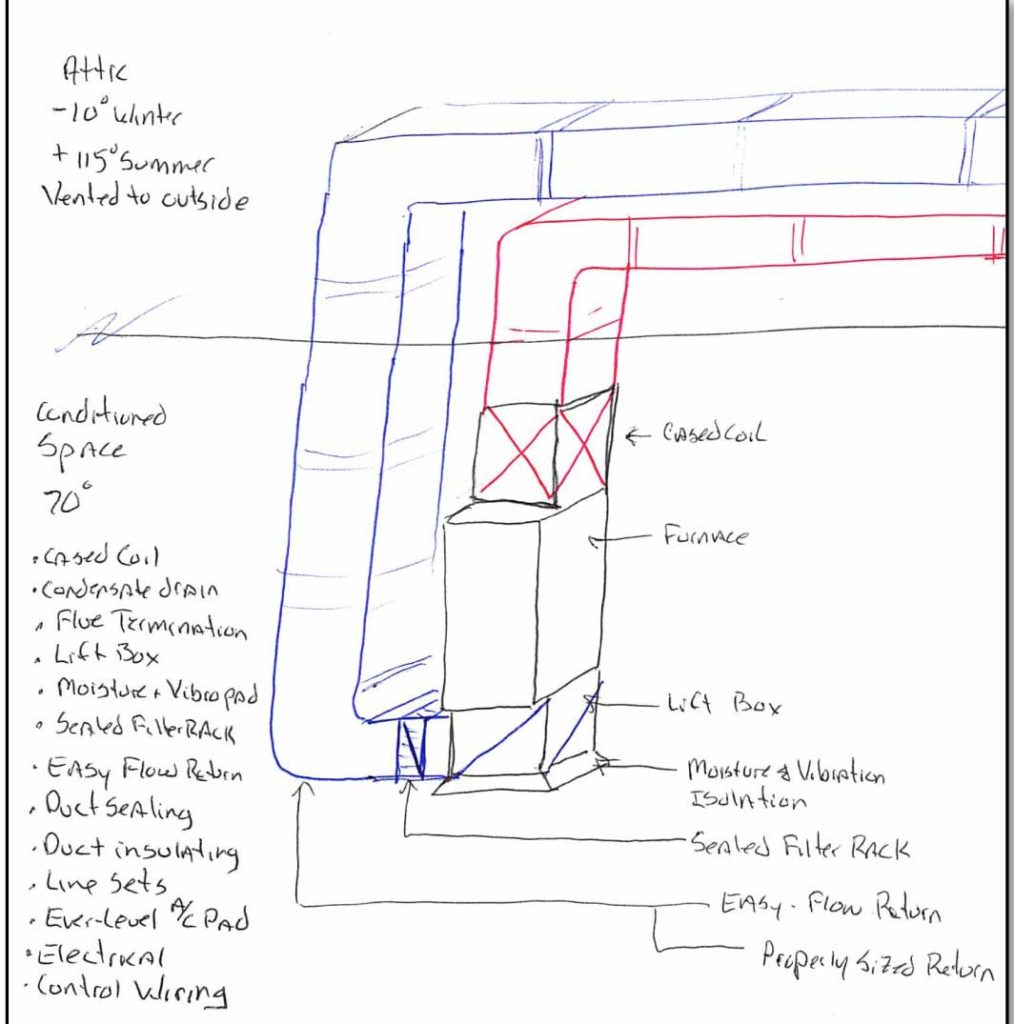 Attic
-10° Winter
+115° Summer
Vented to outside
Conditioned
Space
70°
• Cased Coil
• Condensate drain
• Flue Termination
• Lift Box
• Moisture + Vibropad
• Sealed Filter Rack
• Easy Flow Return
• Duct Sealing
• Duct insulating
• Line Sets
• Ever-Level A/C Pad
• Electrical
• Control Wiring
← Cased Coil
Furnace
Lift Box
Moisture & Vibration
Isolation
Sealed Filter Rack
Easy-Flow Return
Properly Sized Return